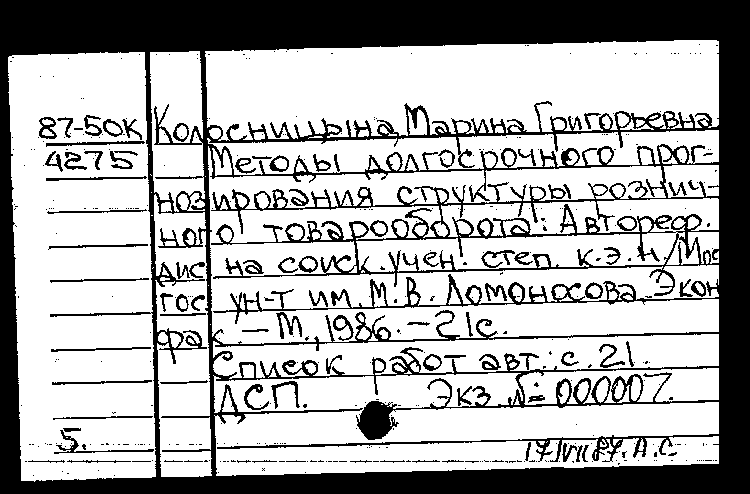 87-50К Колосницына, Марина Григорьевна
4275 Методы долгосрочного прог-
нозирования структуры рознич-
ного товарооборота: Автореф.
дис на соиск. учен. степ. к.э.н/Мос
гос. ун-т им. М.В. Ломоносова, Экон
фак. — М., 1986. — 21с.
Список работ авт.: с. 21.
ДСП. Экз № 000007.
5.
17/VII 87. А.С